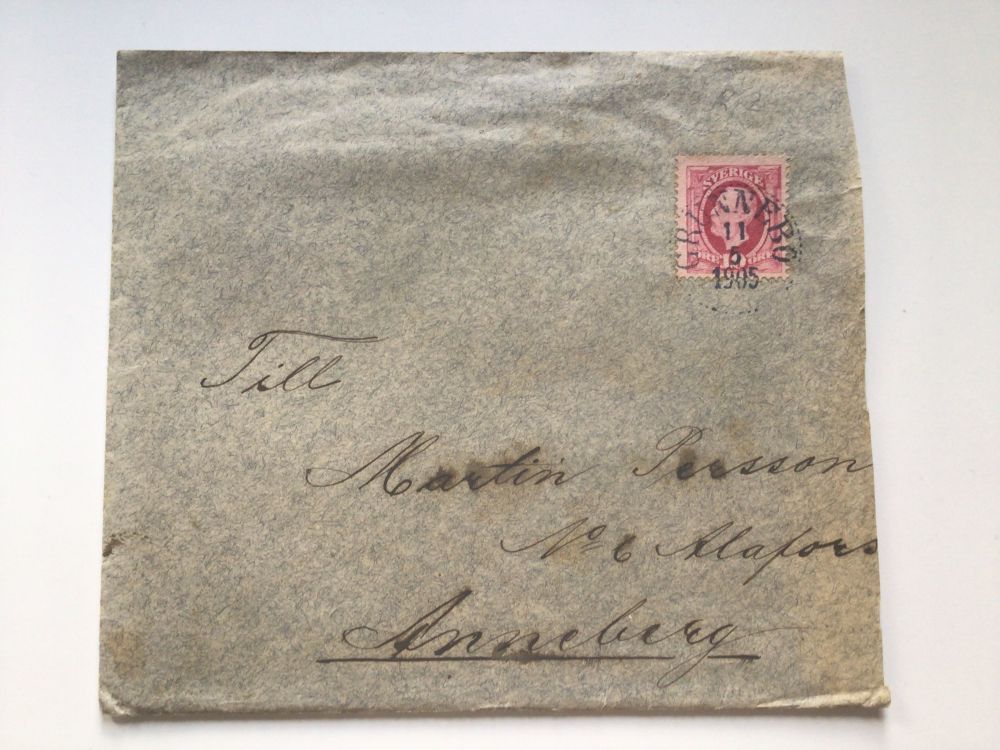 SVERIGE
GRIMNEBO
11
5
1905
ÖRE 10 ÖRE
Till
Martin Persson
No 6 Alafors
Anneberg